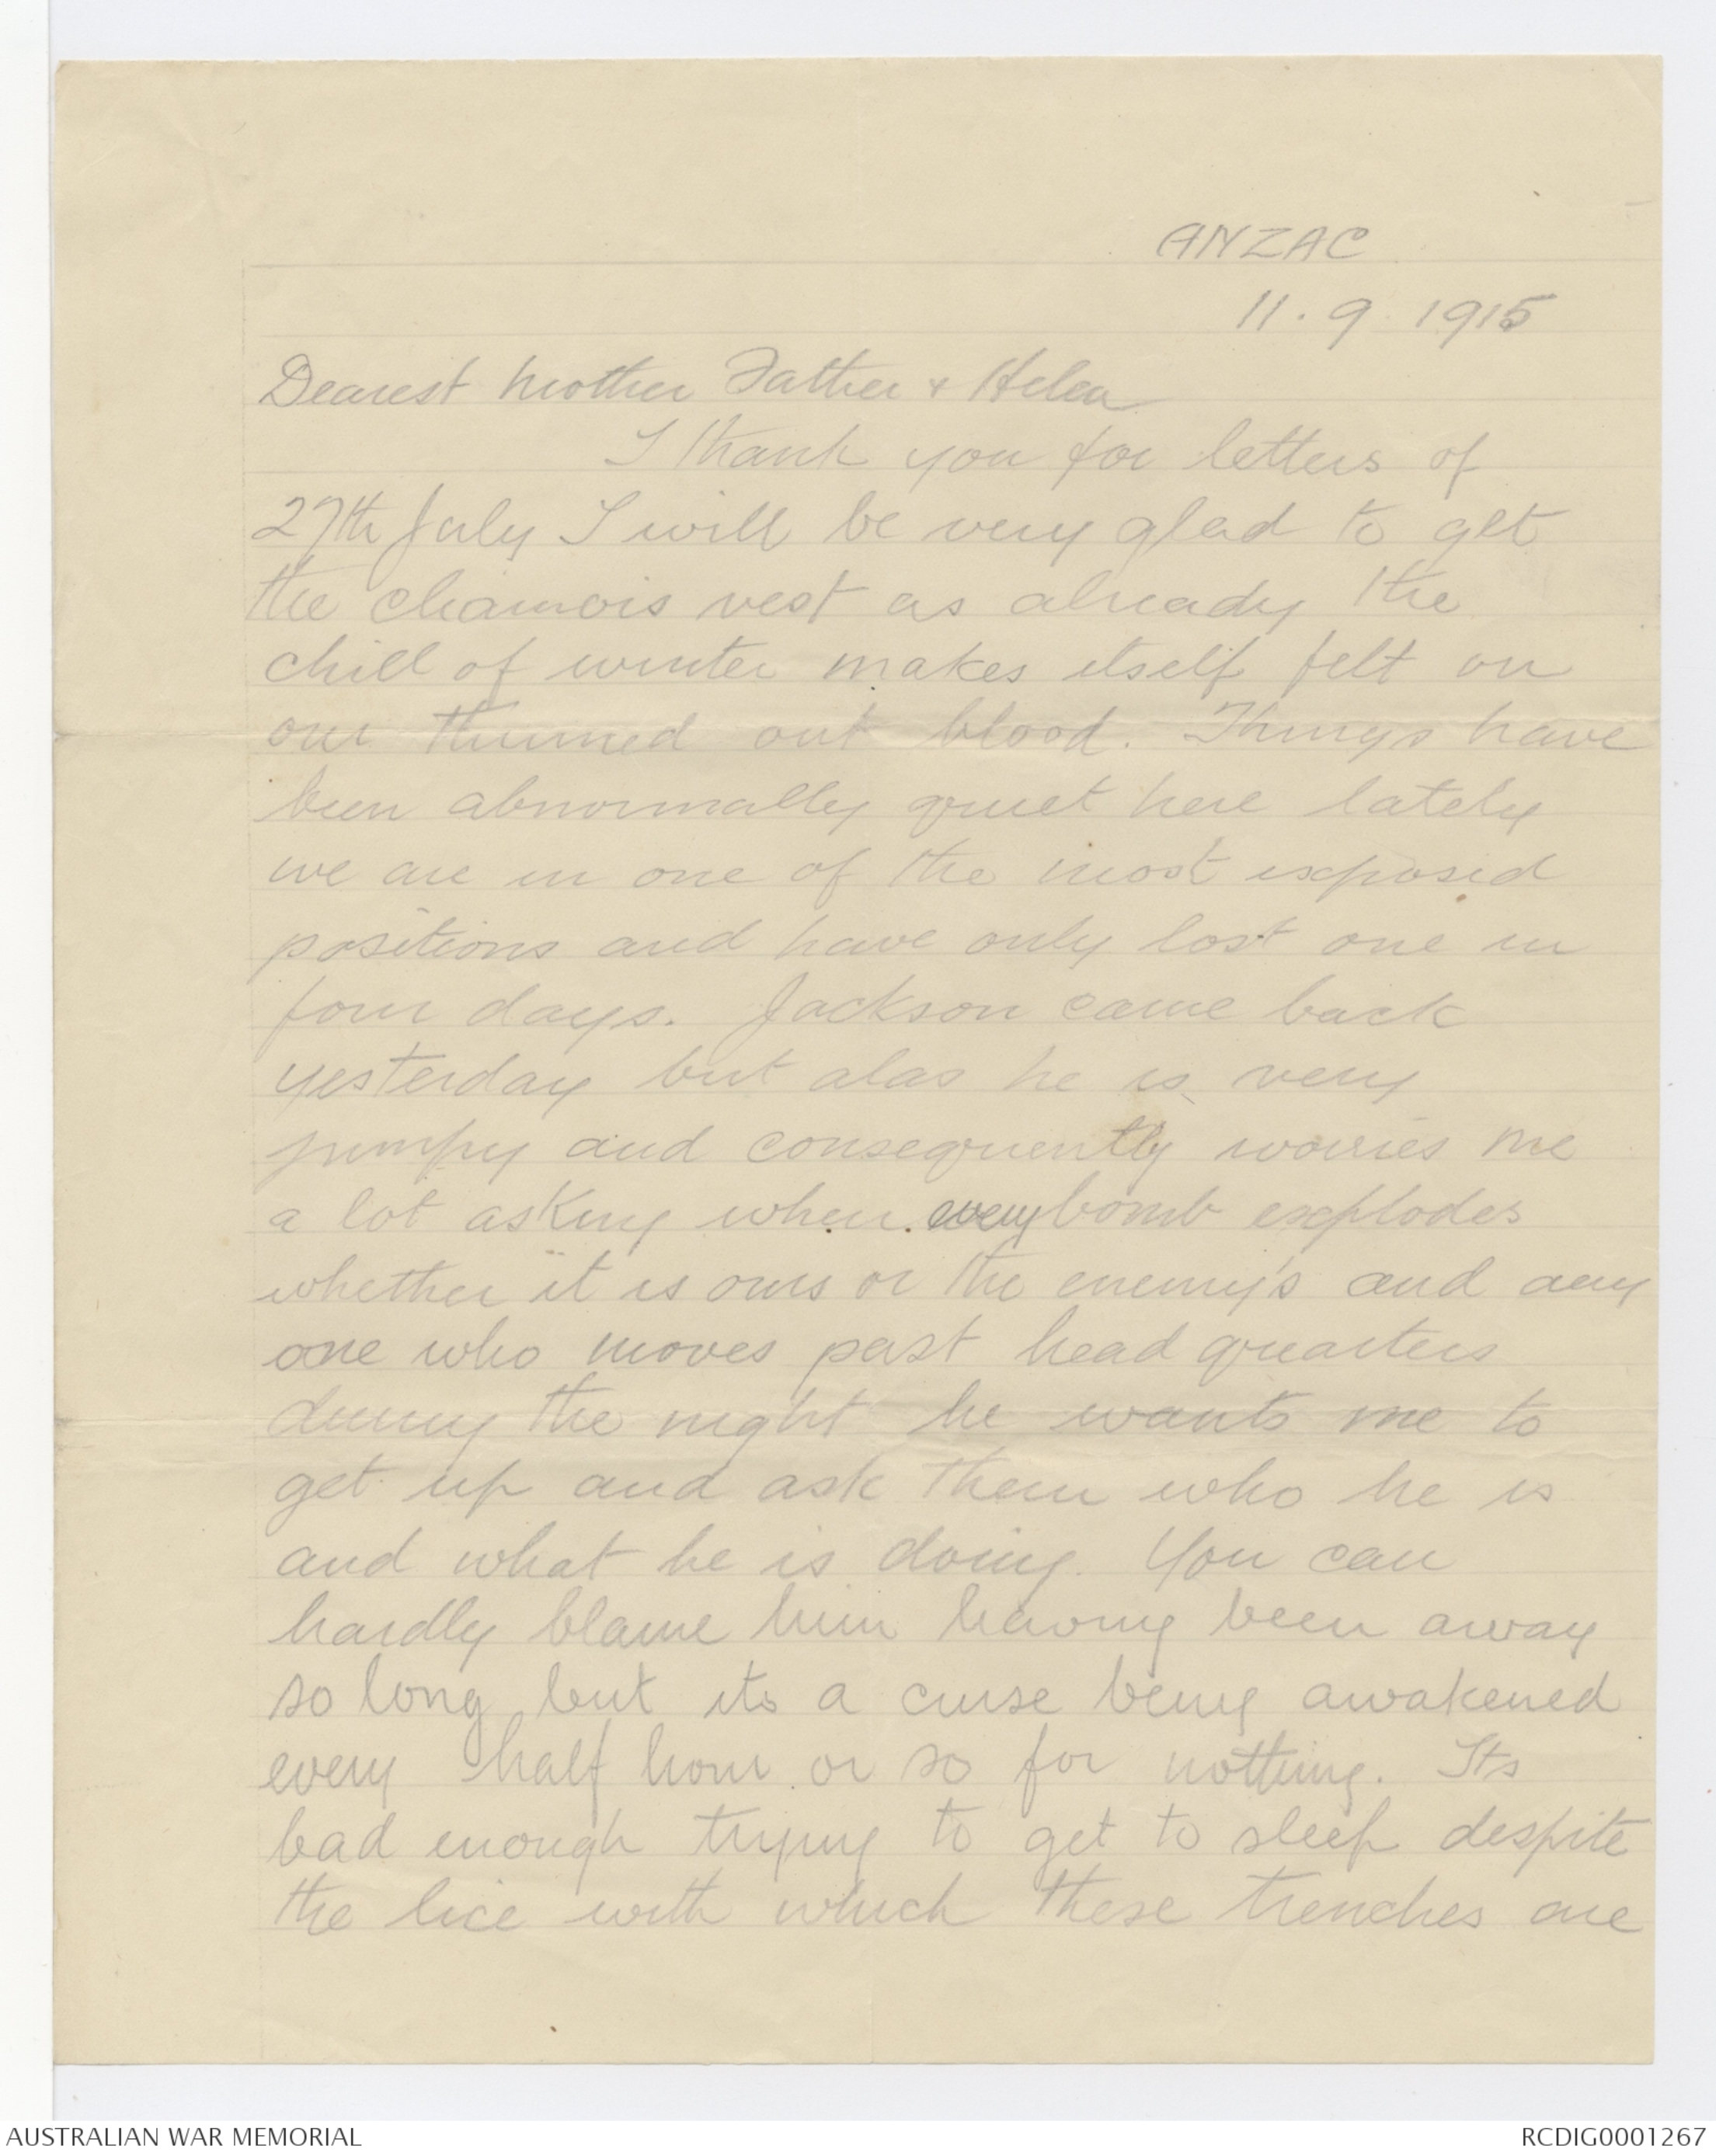 ANZAC
11.9.1915
Dearest Mother Father + Helen
I thank you for letters of
27th July I will be very glad to get
the chamois vest as already the
chill of winter makes itself felt on
our thinned out blood. Things have
been abnormally quiet here lately
we are in one of the most exposed
positions and have only lost one in
four days. Jackson came back
yesterday but alas he is very
jumpy and consequently worries me
a lot asking when every bomb explodes
whether it is ours or the enemy's and any
one who moves past head quarters
during the night he wants me to
get up and ask them who he is
and what he is doing. You can
hardly blame him having been away
so long but its a curse being awakened
every half hour or so for nothing. Its
bad enough trying to get to sleep despite
the lice with which these trenches are
AUSTRALIAN WAR MEMORIAL
RCDIG0001267